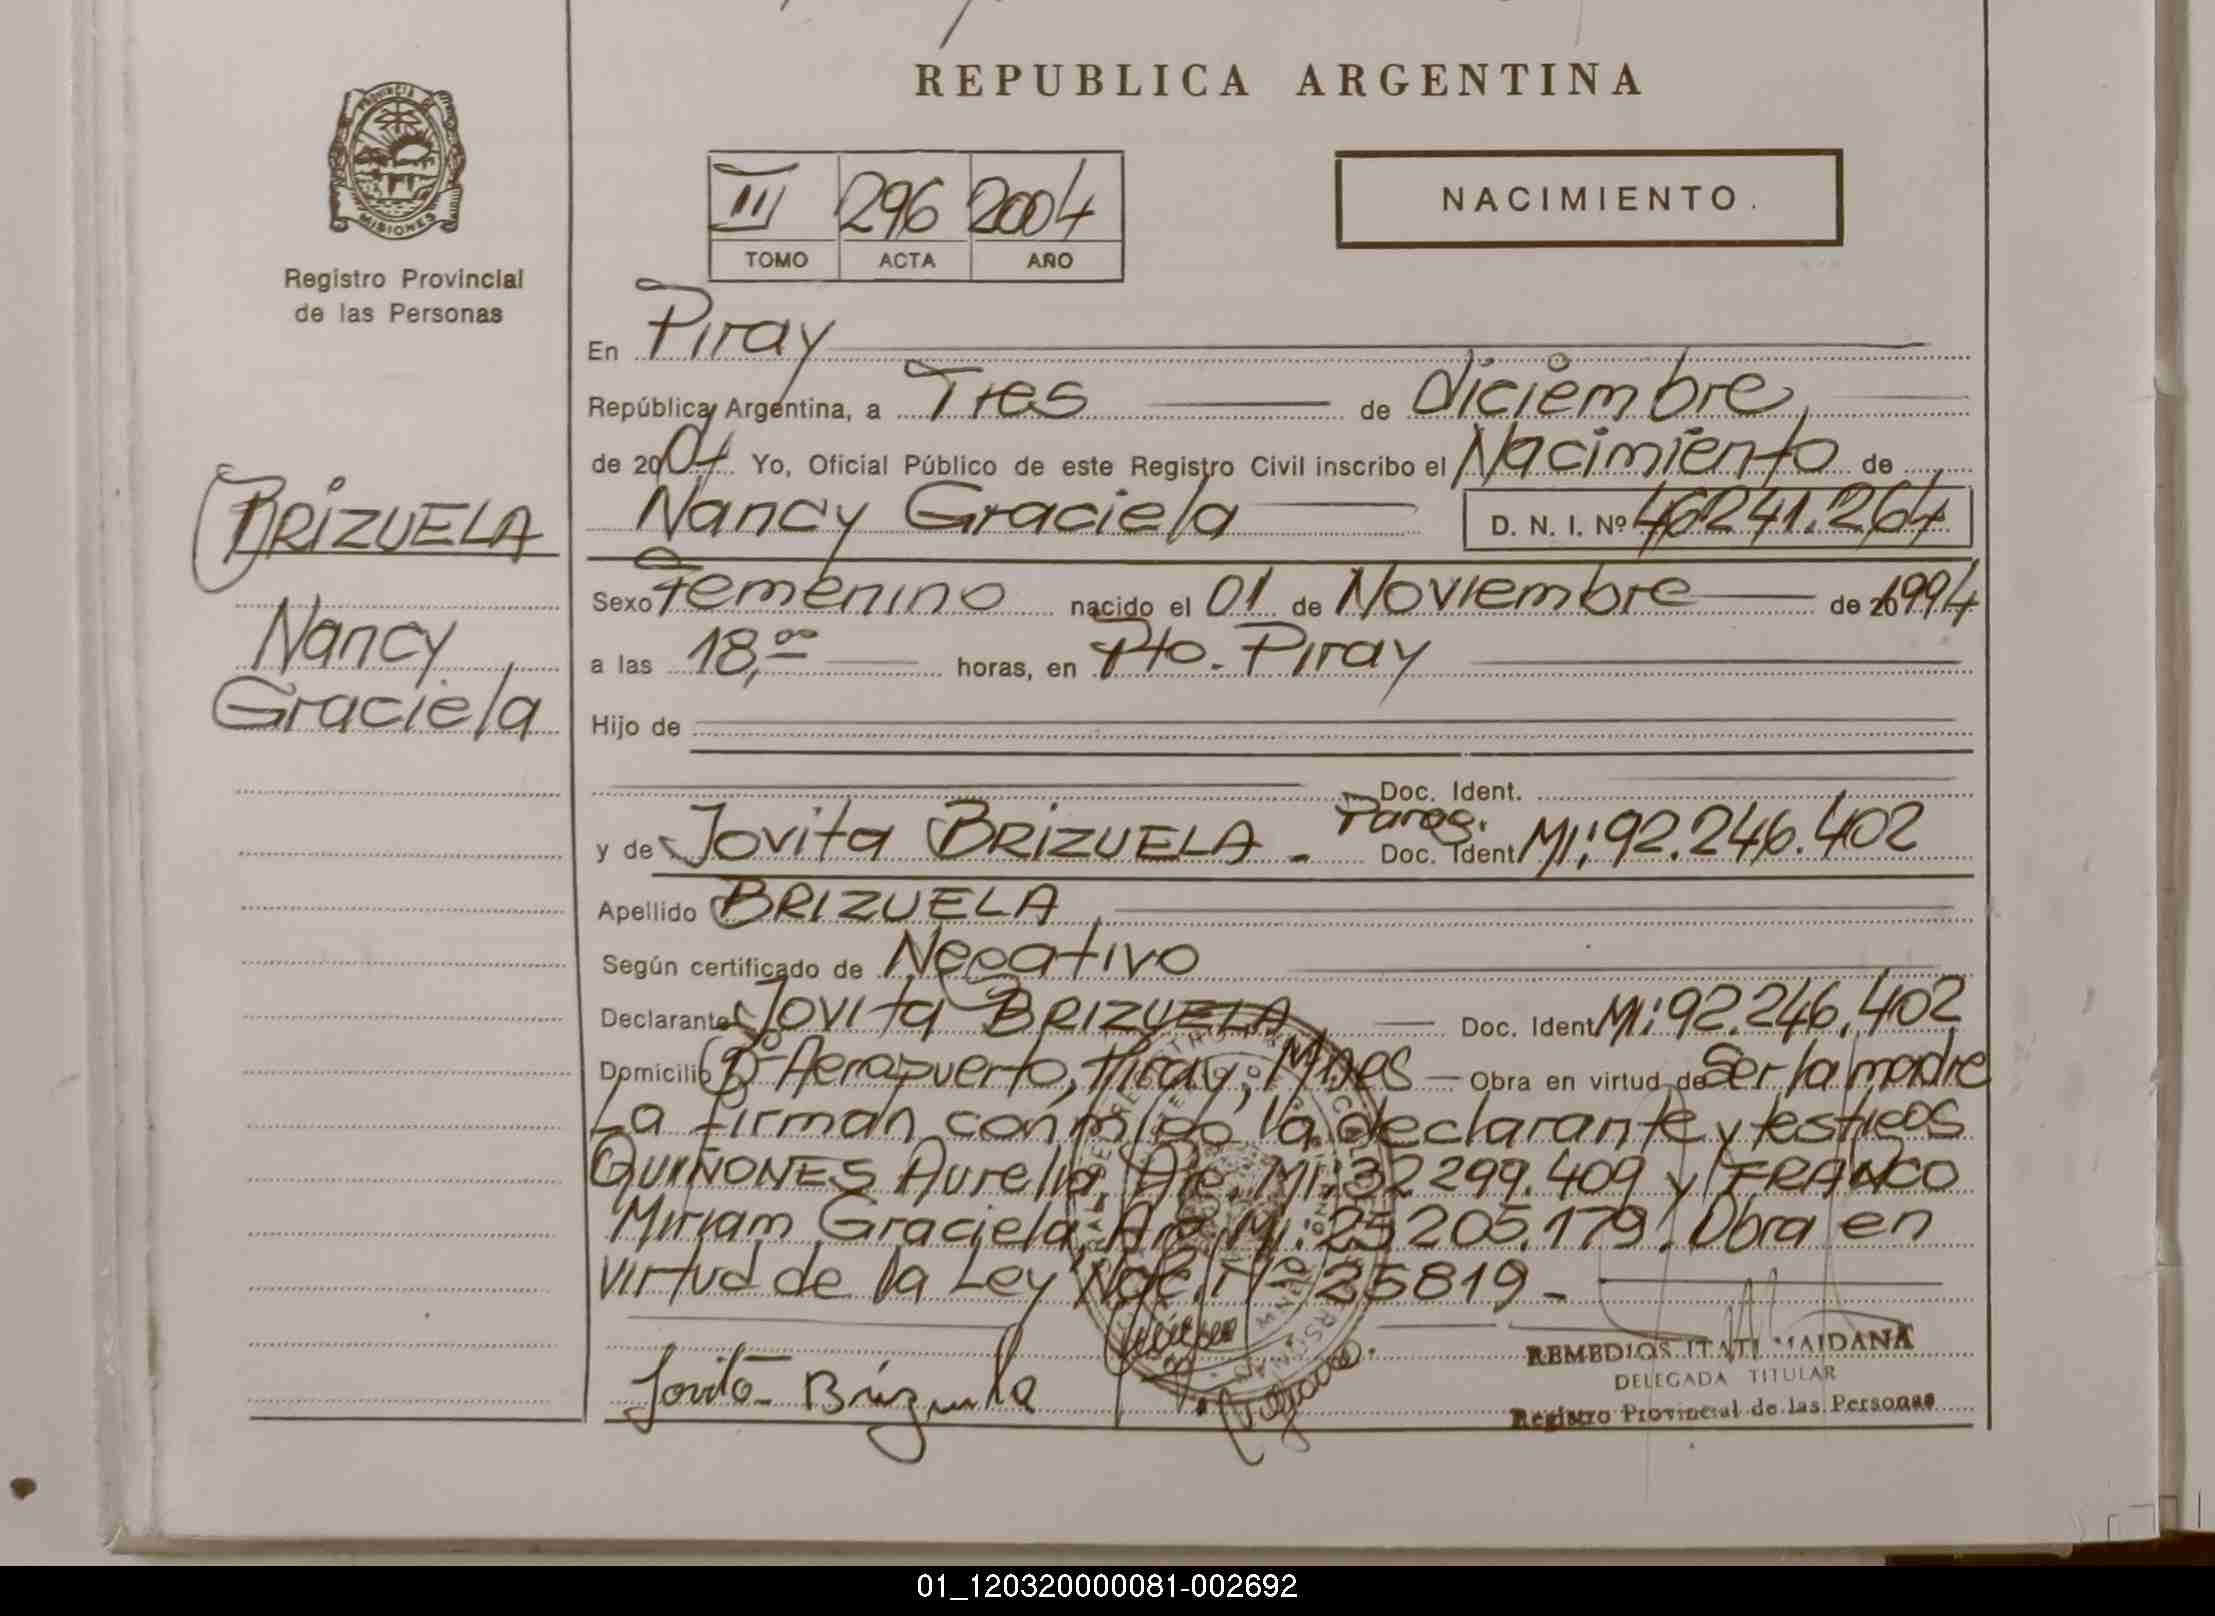 REPUBLICA ARGENTINA
PROVINCIA DE
MISIONES
Registro Provincial
de las Personas
III 296 2004
TOMO ACTA AÑO
NACIMIENTO.
En Piray
República Argentina, a Tres de diciembre,
de 2004 Yo, Oficial Público de este Registro Civil inscribo el Nacimiento de
Nancy Graciela D. N. I. Nº 46241.264
BRIZUELA
Nancy
Graciela
Sexo Femenino nacido el 01 de Noviembre de 1994
a las 18,00 horas, en Pto. Piray
Hijo de
Doc. Ident.
y de Jovita BRIZUELA.- Parag. Doc. Ident MI:92.246.402
Apellido BRIZUELA
Según certificado de Negativo
Declarante Jovita BRIZUELA Doc. Ident MI:92.246.402
Domicilio Bº Aeropuerto, Piray, Mnes Obra en virtud de Ser la madre
La firman conmigo la declarante y testigos
QUIÑONES Aurelia, Arg. MI:32.299.409 y FRANCO
Miriam Graciela, Arg. MI:25.205.179. Obra en
virtud de la Ley Nac. Nº 25819.-
Jovita Brizuela
REMEDIOS ITATI MAIDANA
DELEGADA TITULAR
Registro Provincial de las Personas
01_120320000081-002692